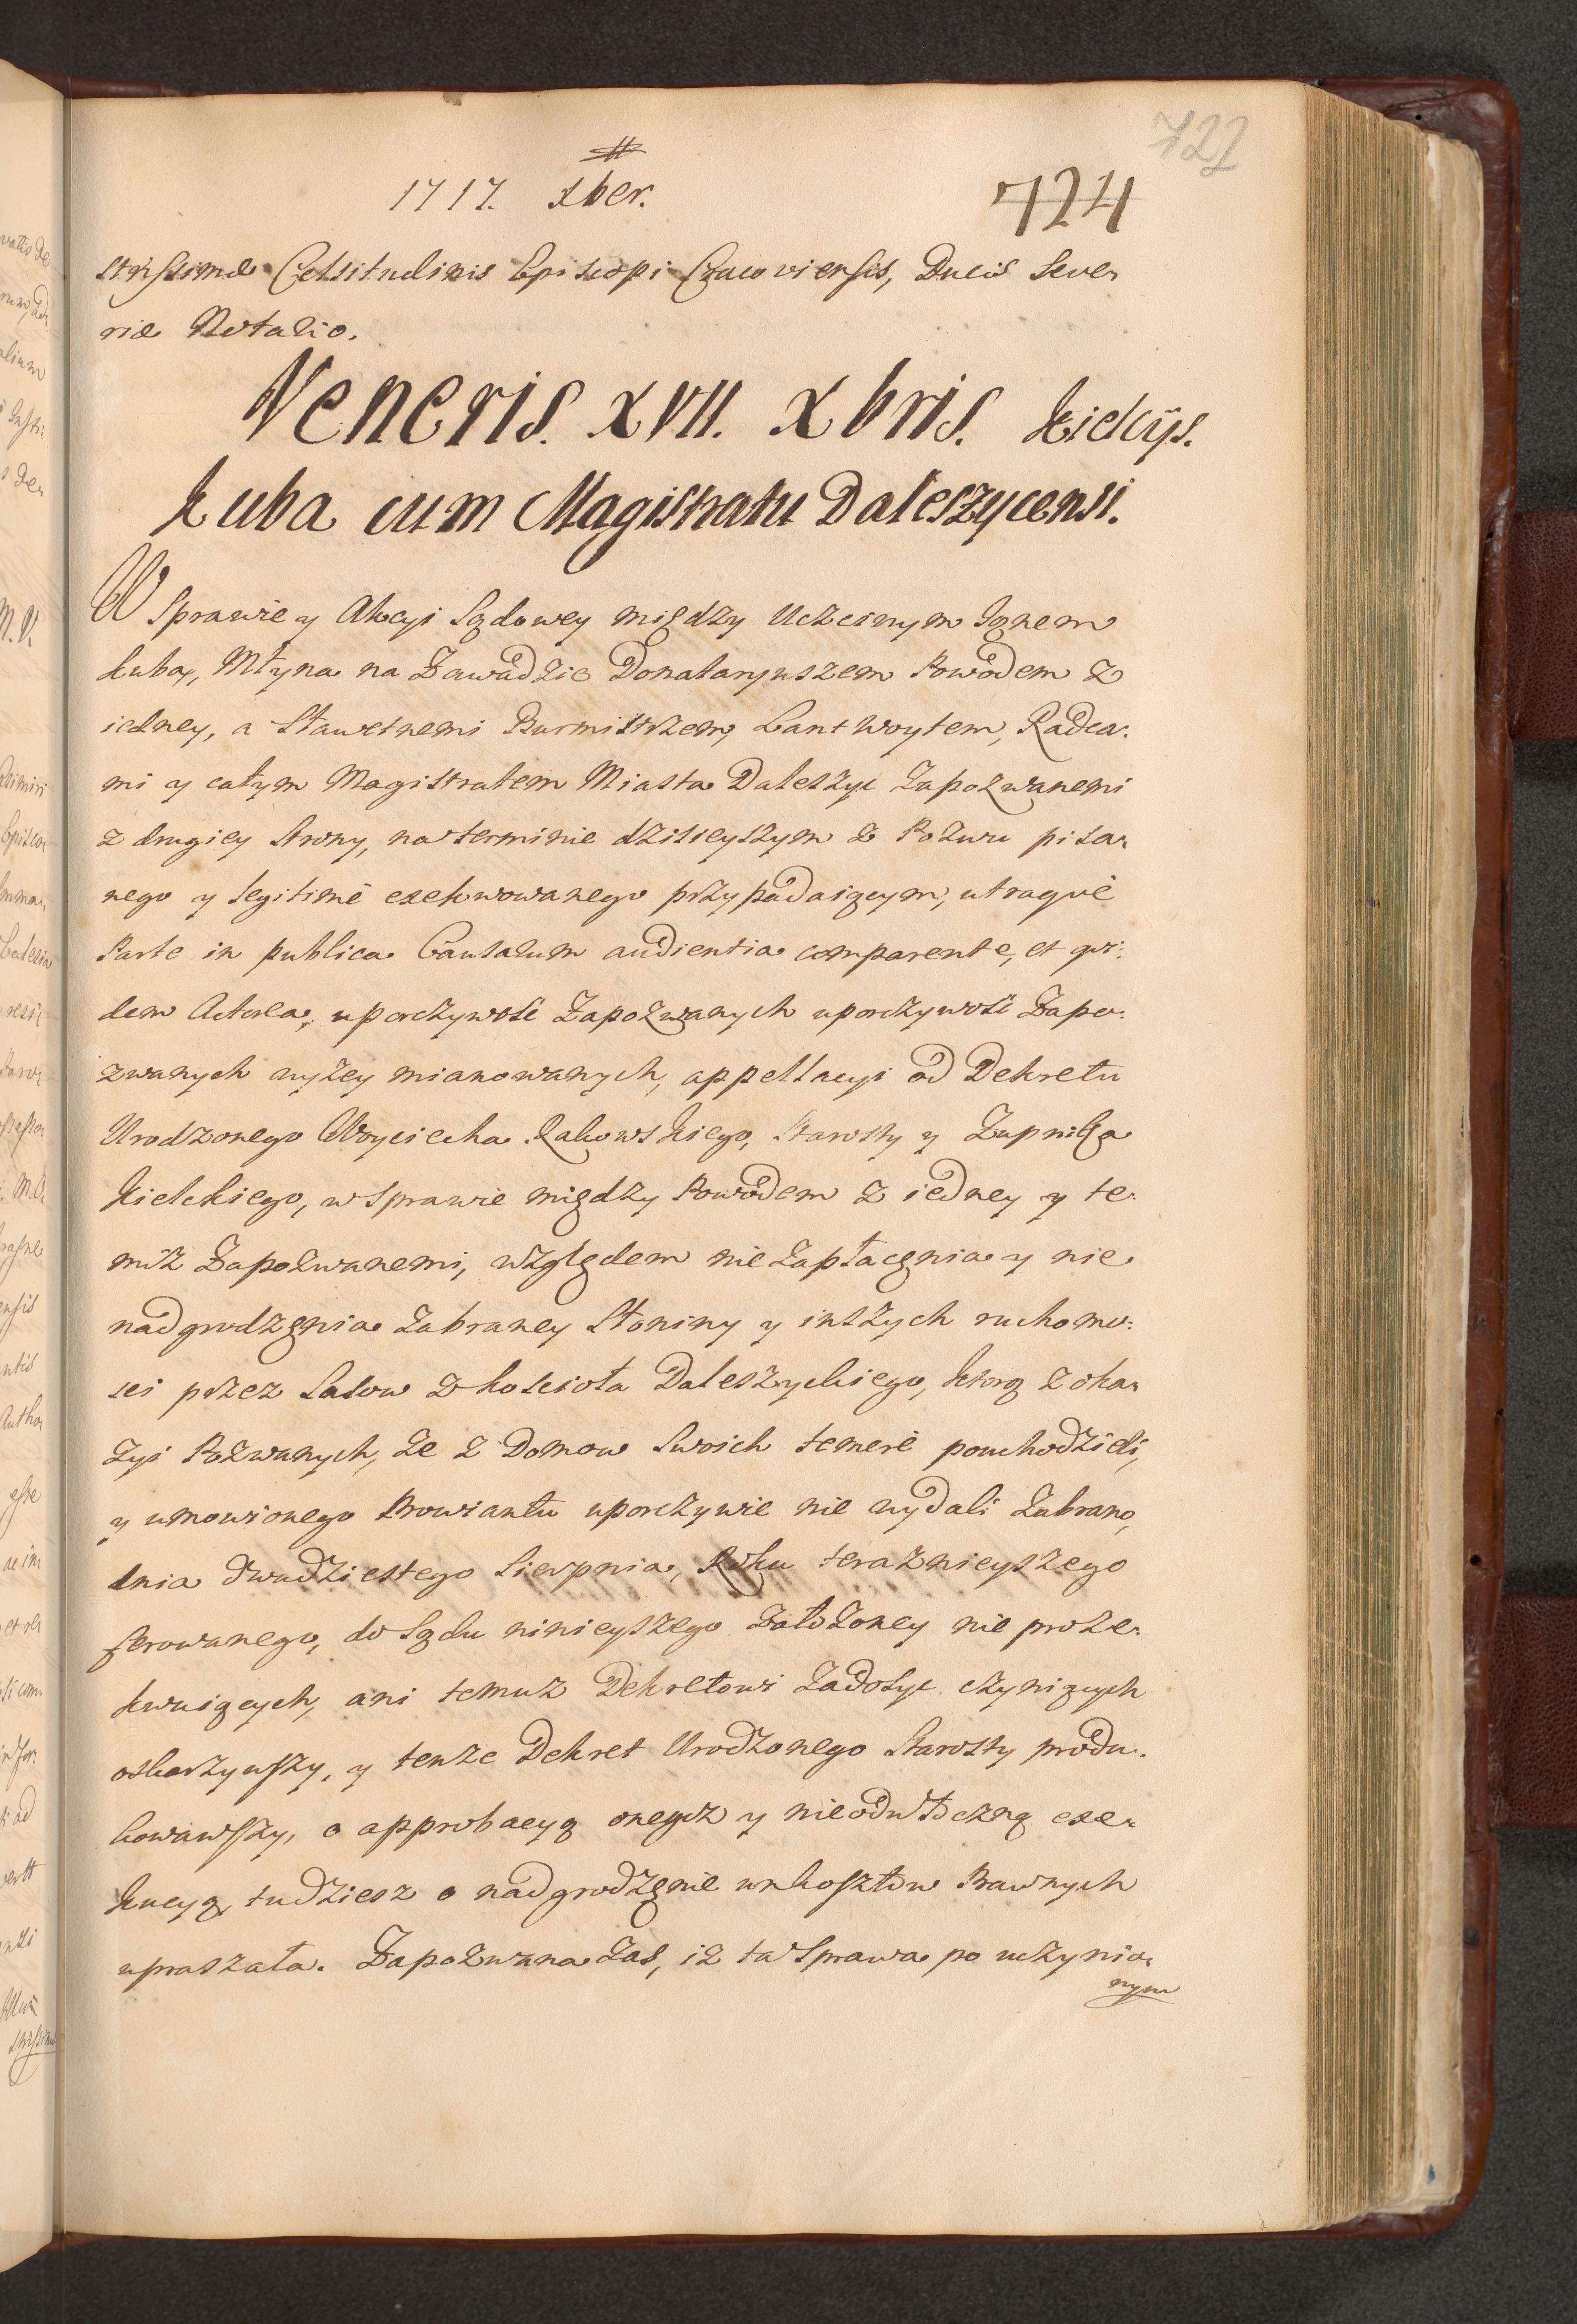 722
1717. Xber.
724
strissimæ Celsitudinis Episcopi Cracoviensis, Ducis Seve-
riæ Notario.
Veneris. XVII. Xbris. Kielcijs.
Kuba cum Magistratu Daleszycensi.
W Sprawie y Akcyi Sądowey między Uczciwym Janem
Kubą, Młyna na Zawadzie Donataryuszem Powodem z
iedney, a Sławetnemi Burmistrzem, Lantwoytem, Radca-
mi y całym Magistratem Miasta Daleszyc Zapozwanemi
z drugiey strony, na terminie dzisieyszym z Pozwu pisa-
nego y legitimè exekwowanego przypadaiącym, utraquè
Parte in publica Causarum audientia comparente, et qui-
dem Actorea, uporczywość Zapozwanych uporczywość Zapo-
zwanych wyżey mianowanych, appellacyi od Dekretu
Urodzonego Woyciecha Rakowskiego, Starosty y Zupnika
Kielckiego, w sprawie między Powodem z iedney y te-
miż Zapozwanemi, względem nie zapłacęnia y nie
nadgrodzęnia zabraney Słoniny y inszych ruchomo-
sci przez Sasow z koscioła Daleszyckiego, ktorą z oka-
zyi Pozwanych, ze z Domow swoich temerè pouchodzieli,
y umowionego Prowiantu uporczywie nie wydali zabrano,
dnia dwudziestego Sierpnia, Roku teraznieyszego
ferowanego, do Sądu ninieyszego założoney nie proze-
kwuiących, ani temuz Dekretowi zadosyc czyniących
oskarzywszy, y tenze Dekret Urodzonego Starosty produ-
kowawszy, o approbacyą onegoz y nieodwłoczną exe-
kucyą, tudziesz o nadgrodzęnie unkosztow Prawnych
upraszała. Zapozwana zas, iz ta Sprawa po uczynio-
nym